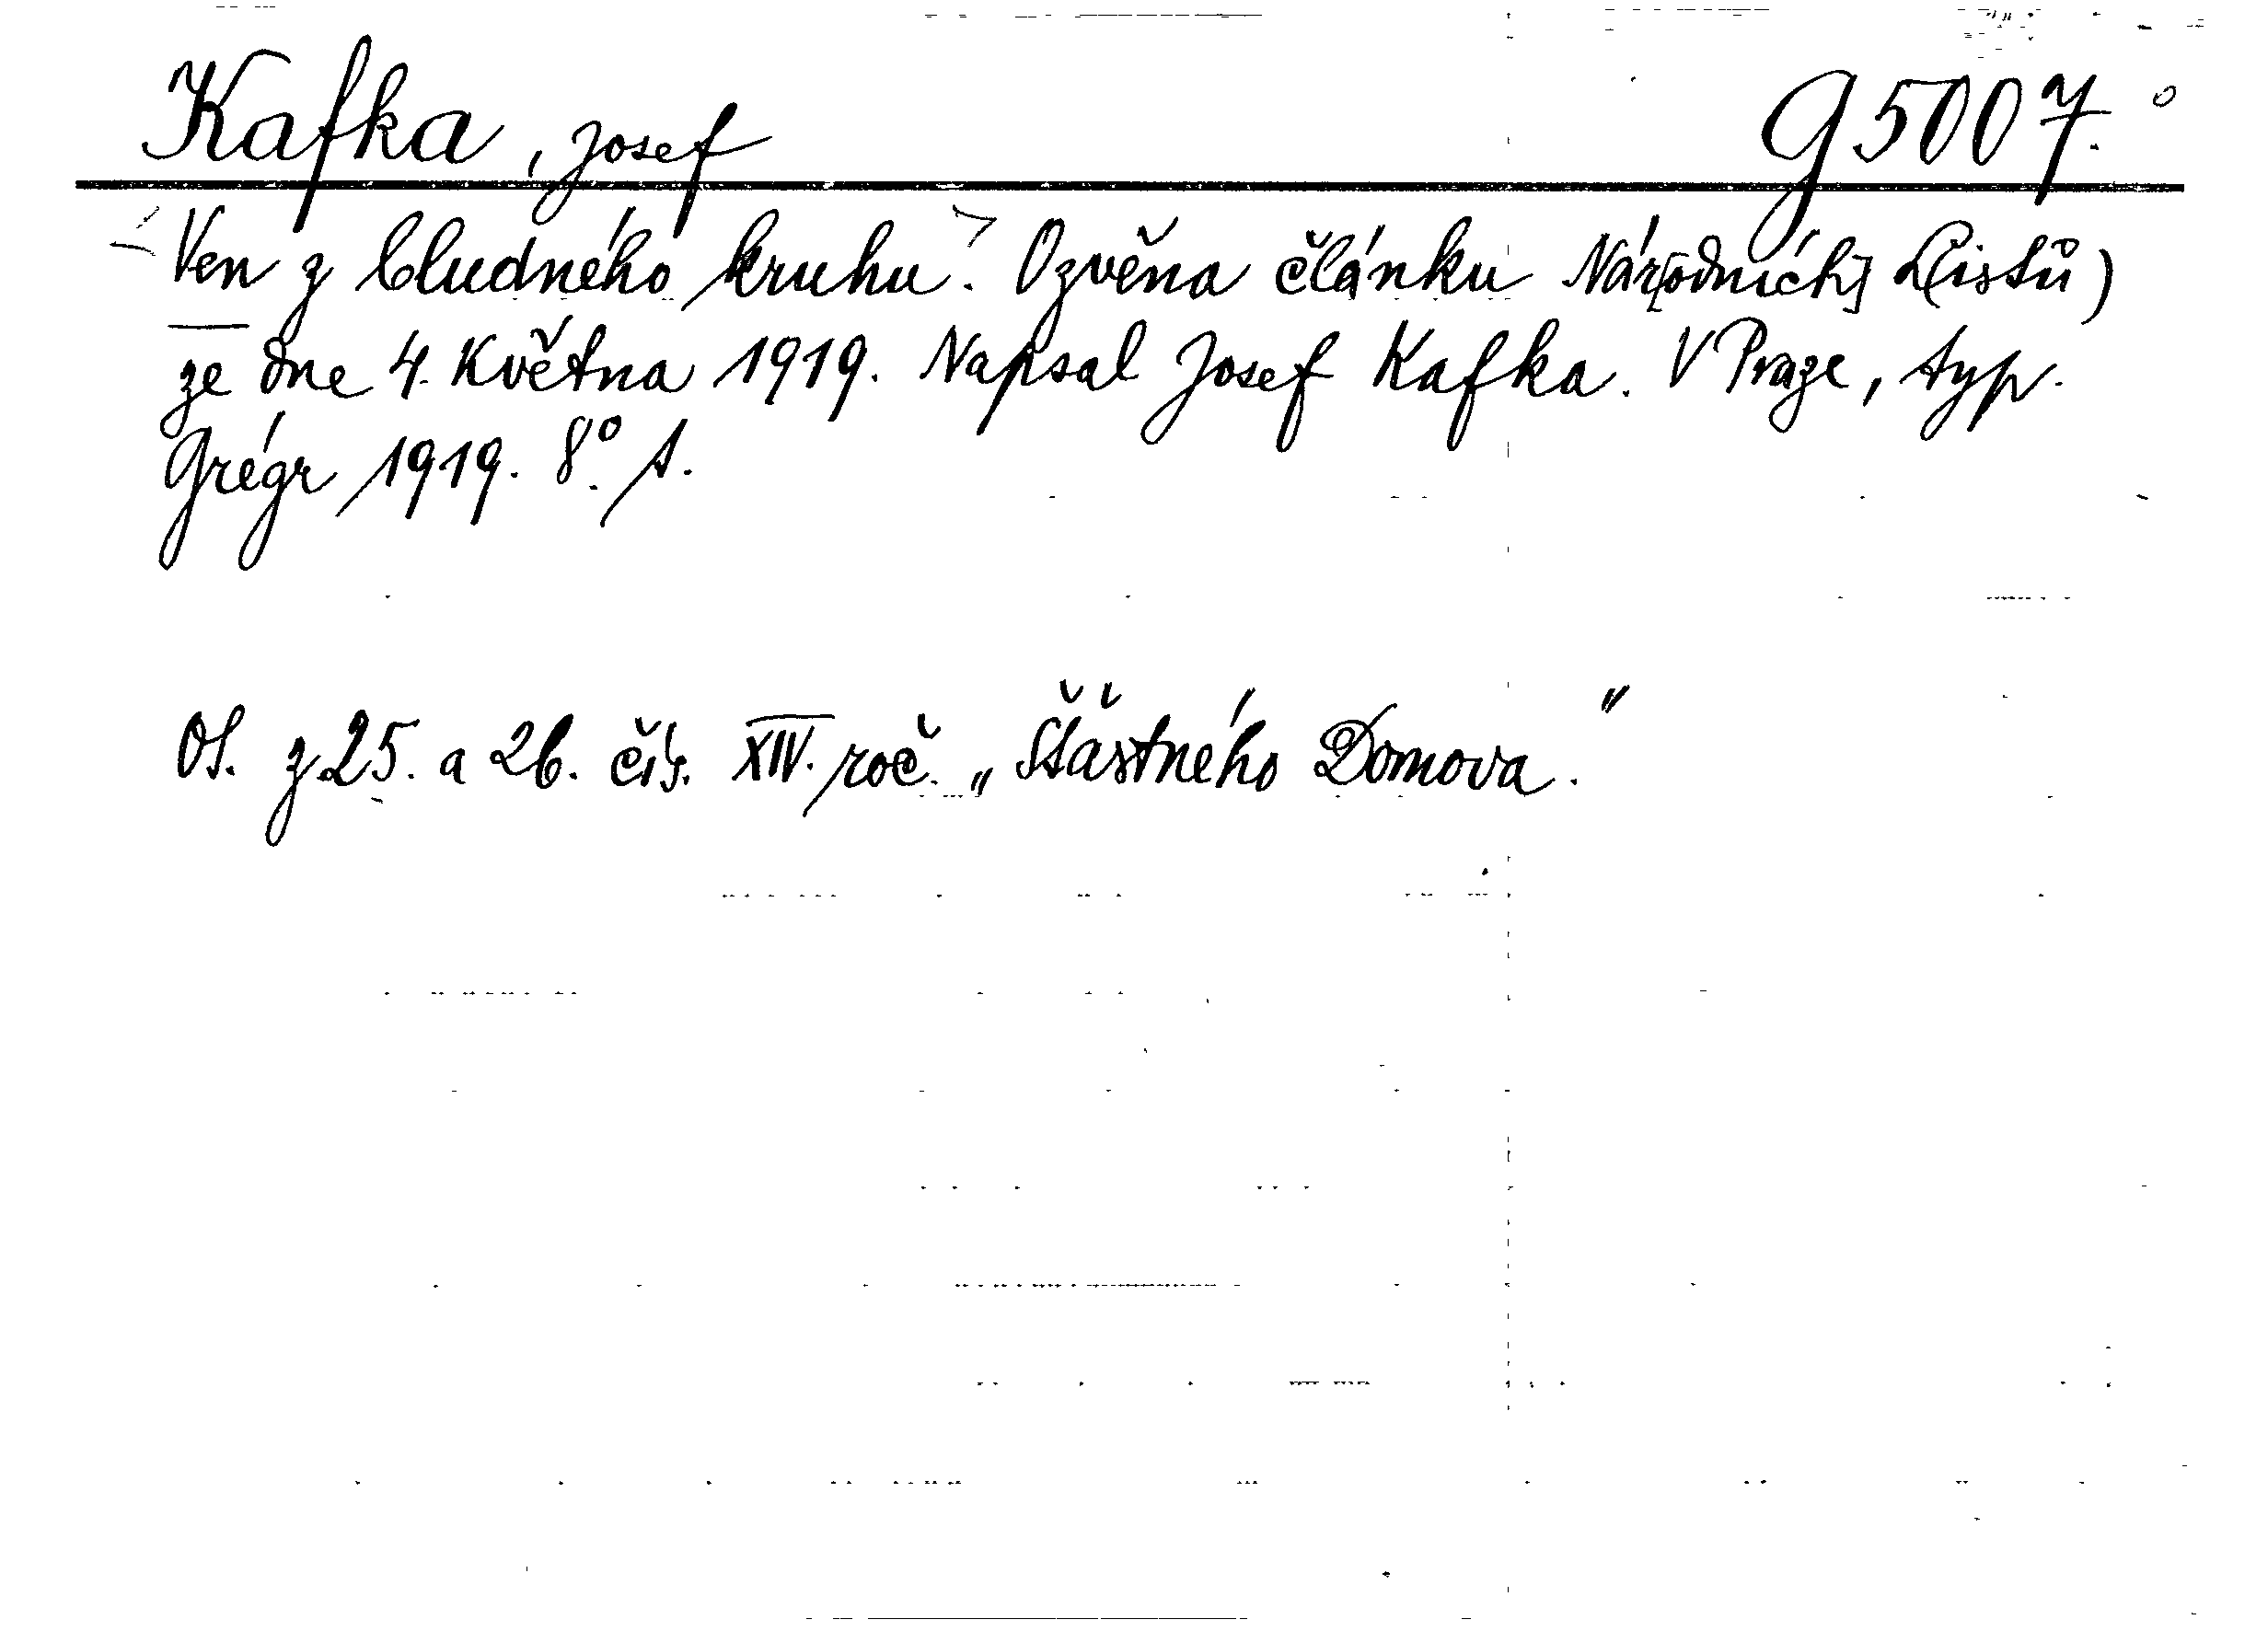 Kafka, Josef G 5007.
<Ven z bludného kruhu.> Ozvěna článku Nár[odních] L(istů)
ze dne 4. května 1919. Napsal Josef Kafka. V Praze, typ.
Grégr 1919. 8°. s.
Ot. z 25. a 26. čís. XIV. roč. „Šťastného Domova."